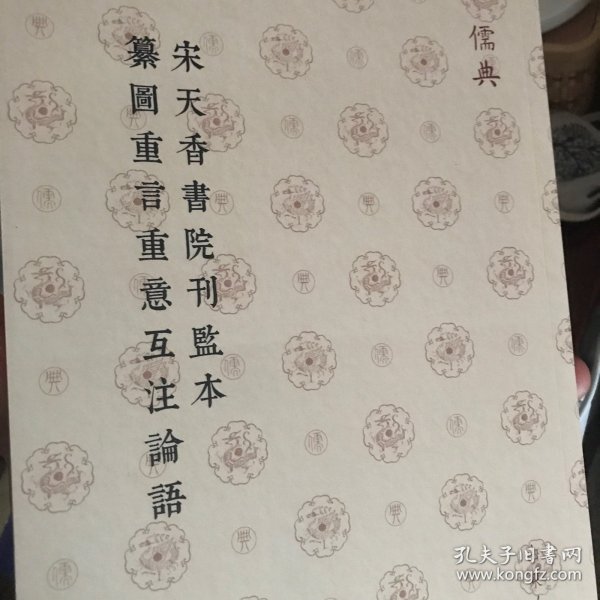 儒典
宋天香書院刊監本
纂圖重言重意互注論語
孔夫子旧書网
www.kongfz.com